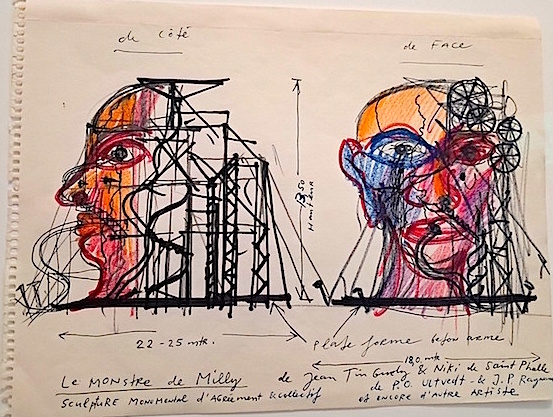 de Côté
de FACE
Hauteur
22-25 mtr.
Plate forme beton armé
18,0 mtr
Le MONSTRE de Milly de Jean Tinguely & Niki de Saint Phalle
de P.O. ULtvedt - & J.P. Raynaud
SculptuRE MONUMENTAL d'AGRéement & collectif et encore d'Autre Artiste